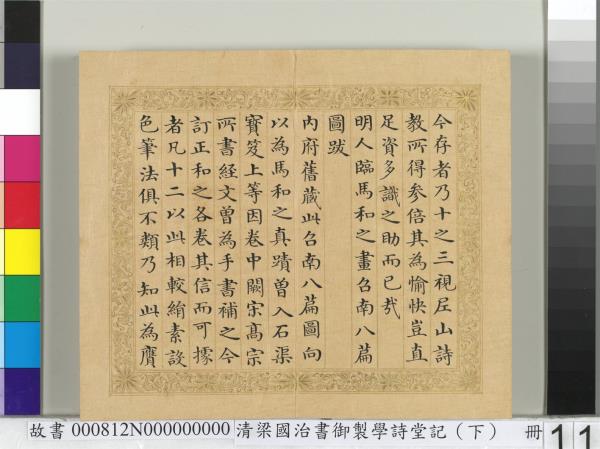 今存者乃十之三視厔山詩
教所得參倍其為愉快豈直
足資多識之助而已哉
明人臨馬和之畫召南八篇
圖跋
內府舊藏此召南八篇圖向
以為馬和之真蹟曾入石渠
寶笈上等因卷中闕宋高宗
所書經文曾為手書補之今
訂正和之各卷其信而可據
者凡十二以此相較絹素設
色筆法俱不類乃知此為贋
故書 000812N000000000 清梁國治書御製學詩堂記（下） 冊 11